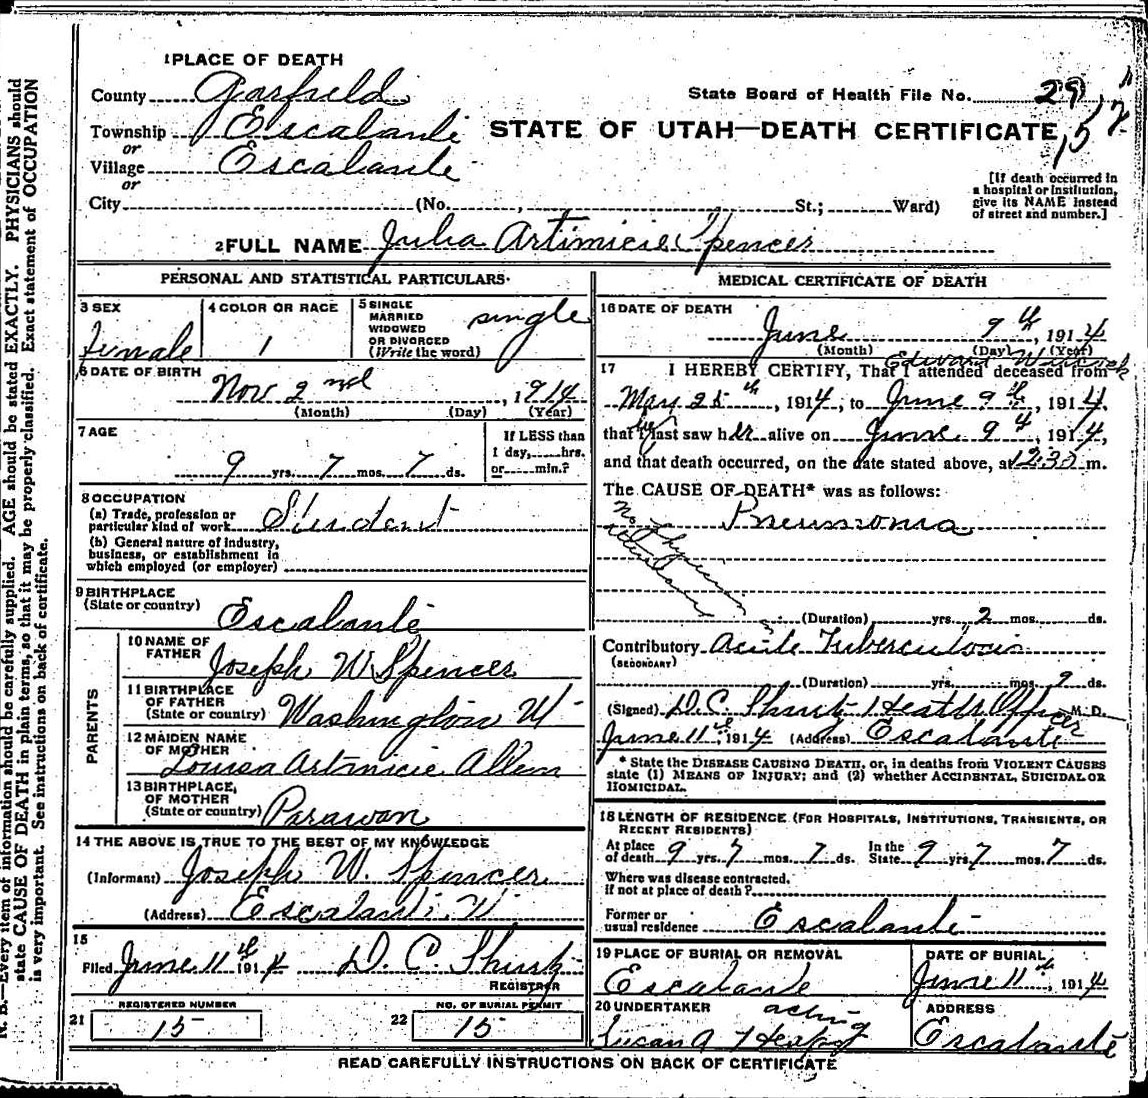 1 PLACE OF DEATH
County Garfield
State Board of Health File No. 29
Township Escalante
or
STATE OF UTAH—DEATH CERTIFICATE
Village Escalante
or
[If death occurred in
a hospital or institution,
give its NAME instead
of street and number.]
City (No. , St.; Ward)
2 FULL NAME Julia Artimicie Spencer
PERSONAL AND STATISTICAL PARTICULARS.
3 SEX
Female
4 COLOR OR RACE
1
5 SINGLE
MARRIED
WIDOWED
OR DIVORCED
(Write the word)
single
6 DATE OF BIRTH
Nov 2nd, 1914
(Month) (Day) (Year)
7 AGE
9 yrs. 7 mos. 7 ds.
If LESS than
1 day, hrs.
or min.?
8 OCCUPATION
(a) Trade, profession or
particular kind of work Student
(b) General nature of industry,
business, or establishment in
which employed (or employer)
9 BIRTHPLACE
(State or country) Escalante
PARENTS
10 NAME OF
FATHER Joseph W Spencer
11 BIRTHPLACE
OF FATHER
(State or country) Washington Ut
12 MAIDEN NAME
OF MOTHER
Louisa Artimicie Allen
13 BIRTHPLACE,
OF MOTHER
(State or country) Parawan
14 THE ABOVE IS TRUE TO THE BEST OF MY KNOWLEDGE
(Informant) Joseph W. Spencer
(Address) Escalante, Ut
15
Filed June 11th 1914 D. C. Shurtz
REGISTRAR
REGISTERED NUMBER
21 15
NO. OF BURIAL PERMIT
22 15
MEDICAL CERTIFICATE OF DEATH
16 DATE OF DEATH
June 9th, 1914
(Month) (Day) (Year)
Edward Wilcock
17 I HEREBY CERTIFY, That I attended deceased from
May 25th, 1914, to June 9th, 1914,
that he last saw her alive on June 9th, 1914,
and that death occurred, on the date stated above, at 12:30 m.
The CAUSE OF DEATH* was as follows:
Pneumonia
No Physician
Attendance
(Duration) yrs. 2 mos. ds.
Contributory Acute Tuberculosis
(SECONDARY)
(Duration) yrs. mos. 9 ds.
(Signed) D. C. Shurtz Health Officer M. D.
June 11th, 1914 (Address) Escalante
* State the DISEASE CAUSING DEATH, or, in deaths from VIOLENT CAUSES
state (1) MEANS OF INJURY; and (2) whether ACCIDENTAL, SUICIDAL OR
HOMICIDAL.
18 LENGTH OF RESIDENCE (FOR HOSPITALS, INSTITUTIONS, TRANSIENTS, OR
RECENT RESIDENTS)
At place
of death 9 yrs. 7 mos. 7 ds. In the
State 9 yrs. 7 mos. 7 ds.
Where was disease contracted,
if not at place of death?
Former or
usual residence Escalante
19 PLACE OF BURIAL OR REMOVAL
Escalante
DATE OF BURIAL
June 11th, 1914
20 UNDERTAKER acting
Susan A
ADDRESS
Escalante
READ CAREFULLY INSTRUCTIONS ON BACK OF CERTIFICATE
N. B.—Every item of information should be carefully supplied. AGE should be stated EXACTLY. PHYSICIANS should
state CAUSE OF DEATH in plain terms, so that it may be properly classified. Exact statement of OCCUPATION
is very important. See instructions on back of certificate.